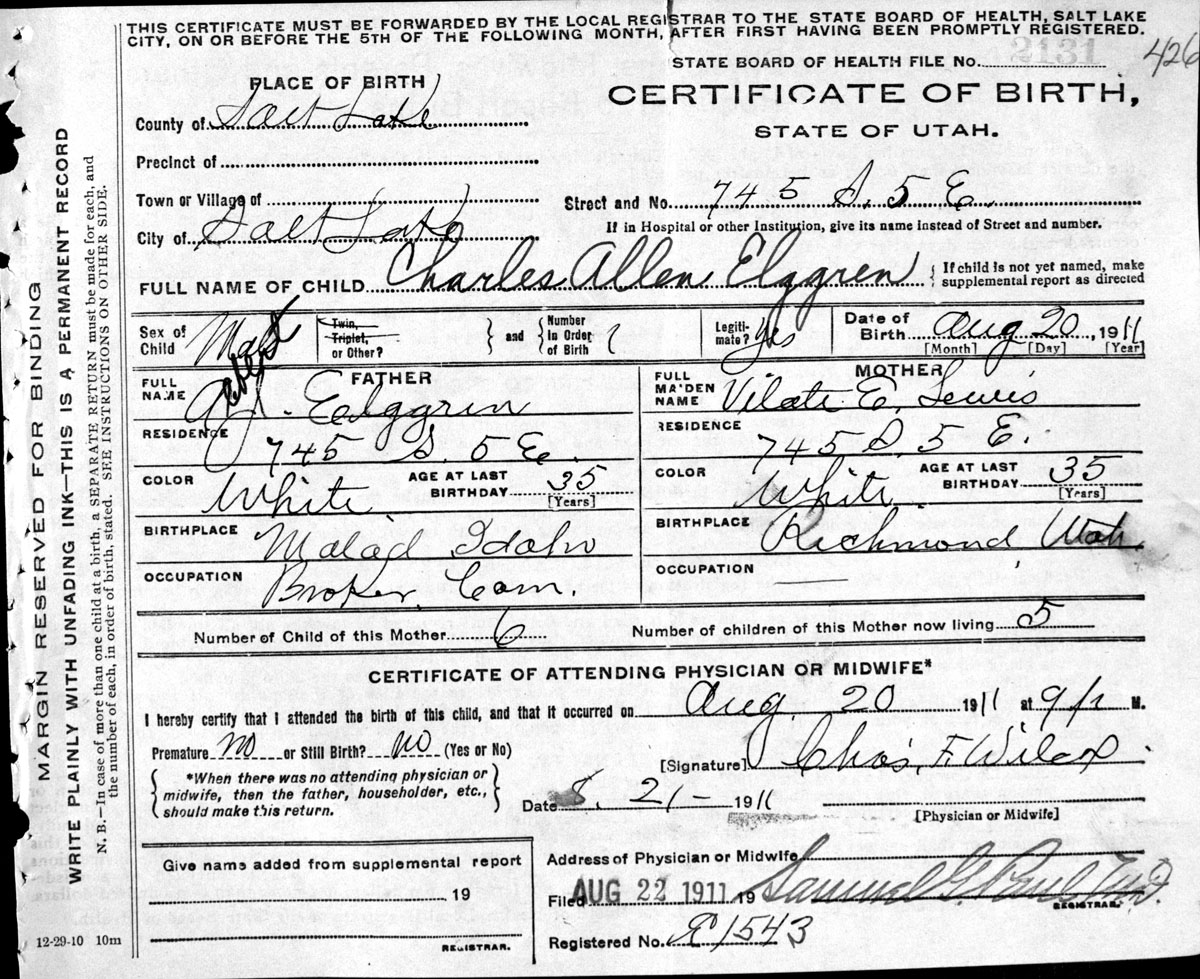 THIS CERTIFICATE MUST BE FORWARDED BY THE LOCAL REGISTRAR TO THE STATE BOARD OF HEALTH, SALT LAKE
CITY, ON OR BEFORE THE 5TH OF THE FOLLOWING MONTH, AFTER FIRST HAVING BEEN PROMPTLY REGISTERED.
STATE BOARD OF HEALTH FILE No. 2131
426
PLACE OF BIRTH
CERTIFICATE OF BIRTH,
STATE OF UTAH.
County of Salt Lake
Precinct of
Town or Village of
Street and No. 745 S. 5 E.
City of Salt Lake
If in Hospital or other Institution, give its name instead of Street and number.
FULL NAME OF CHILD Charles Allen Elggren
{ If child is not yet named, make
supplemental report as directed
Sex of Child Male
Twin, Triplet, or Other?
and { Number in Order of Birth
Legitimate? Yes
Date of Birth Aug 20, 1911
[Month] [Day] [Year]
FATHER
MOTHER
FULL NAME A. J. Eelggrin
FULL MAIDEN NAME Vilate E. Lewis
RESIDENCE 745 S. 5 E.
RESIDENCE 745 S. 5 E.
COLOR White AGE AT LAST BIRTHDAY 35 [Years]
COLOR White AGE AT LAST BIRTHDAY 35 [Years]
BIRTHPLACE Malad Idaho
BIRTHPLACE Richmond Utah
OCCUPATION Broker, Com.
OCCUPATION
Number of Child of this Mother 6 Number of children of this Mother now living 5
CERTIFICATE OF ATTENDING PHYSICIAN OR MIDWIFE*
I hereby certify that I attended the birth of this child, and that it occurred on Aug. 20 1911 at 9 P. M.
Premature No or Still Birth? No (Yes or No)
[Signature] Chas. F. Wilcox
*When there was no attending physician or
midwife, then the father, householder, etc.,
should make this return.
Date 8. 21- 1911
[Physician or Midwife]
Give name added from supplemental report
19
REGISTRAR.
Address of Physician or Midwife
Filed AUG 22 1911, 19 Samuel G. Paul M.D.
REGISTRAR.
Registered No. E1543
12-29-10 10m
MARGIN RESERVED FOR BINDING
WRITE PLAINLY WITH UNFADING INK—THIS IS A PERMANENT RECORD
N. B.—In case of more than one child at a birth, a SEPARATE RETURN must be made for each, and
the number of each, in order of birth, stated. SEE INSTRUCTIONS ON OTHER SIDE.